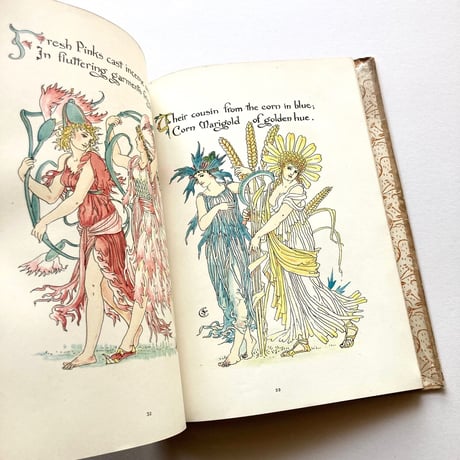 Fresh Pinks cast incense
In fluttering garments
32
Their cousin from the corn in blue;
Corn Marigold of golden hue.